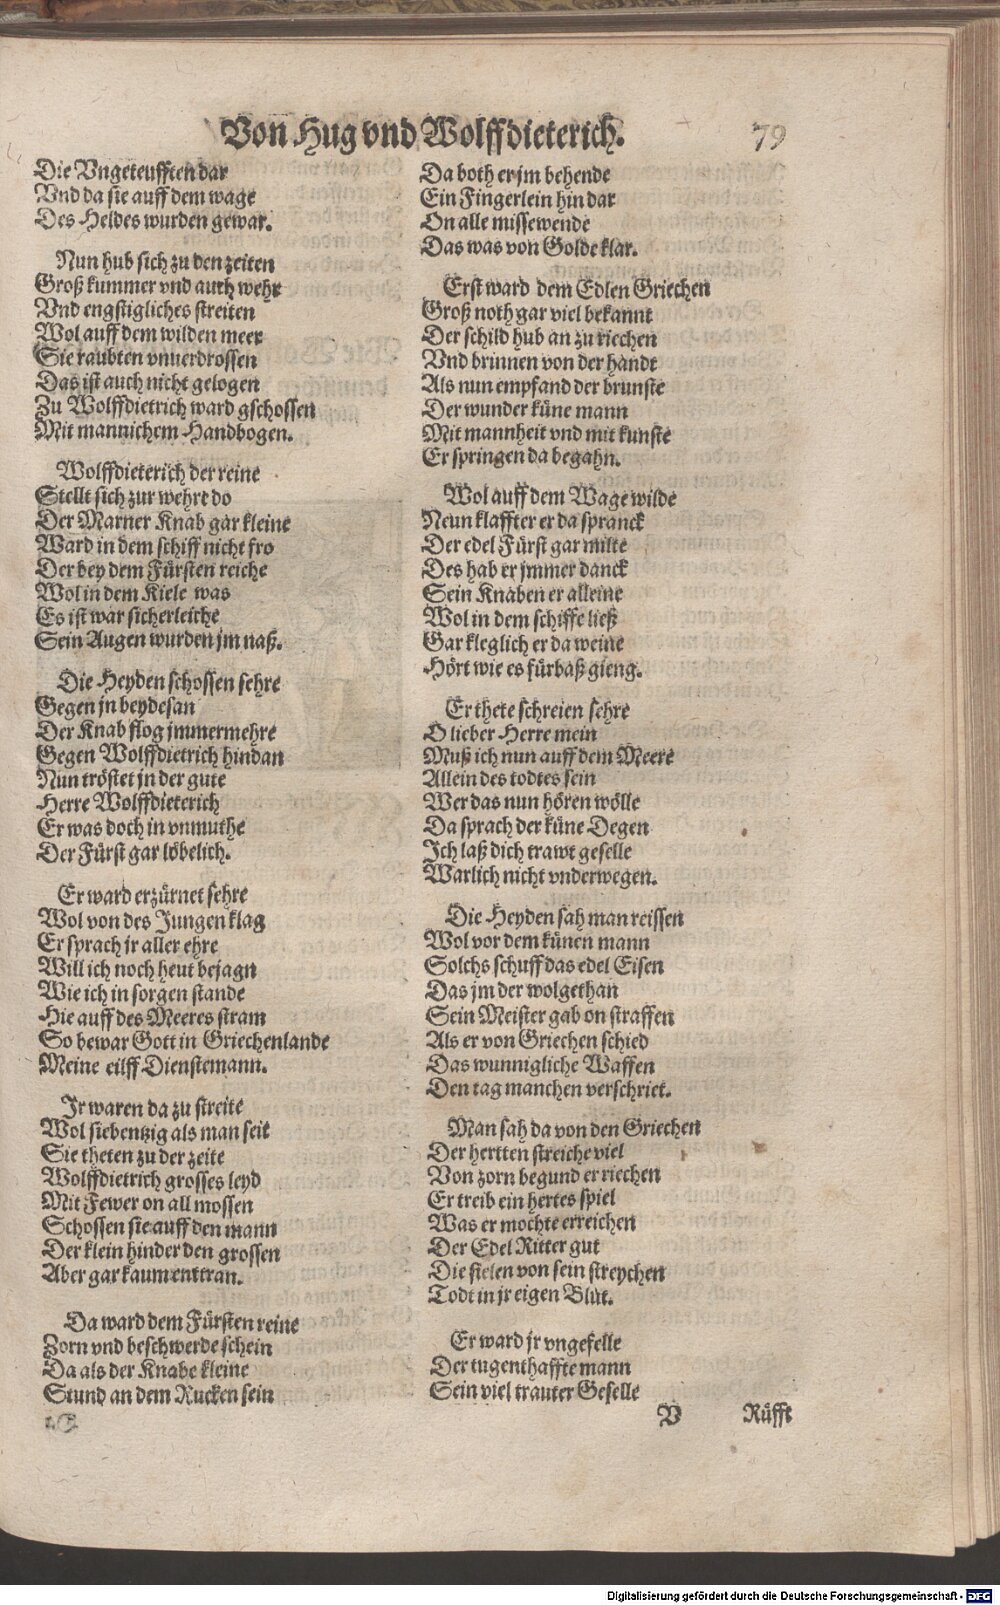 Von Hug vnd Wolffdieterich.
79
Die Vngeteufften dar
Vnd da sie auff dem wage
Des Heldes wurden gewar.
Nun hub sich zu den zeiten
Groß kummer vnd auch wehr
Vnd engstigliches streiten
Wol auff dem wilden meer
Sie raubten vnuerdrossen
Das ist auch nicht gelogen
Zu Wolffdietrich ward gschossen
Mit mannichem Handbogen.
Wolffdieterich der reine
Stellt sich zur wehre do
Der Marner Knab gar kleine
Ward in dem schiff nicht fro
Der bey dem Fürsten reiche
Wol in dem Kiele was
Es ist war sicherleiche
Sein Augen wurden jm naß.
Die Heyden schossen sehre
Gegen jn beydesan
Der Knab flog jmmermehre
Gegen Wolffdietrich hindan
Nun tröstet jn der gute
Herre Wolffdieterich
Er was doch in vnmuthe
Der Fürst gar löbelich.
Er ward erzürnet sehre
Wol von des Jungen klag
Er sprach jr aller ehre
Will ich noch heut bejagn
Wie ich in sorgen stande
Hie auff des Meeres stram
So bewar Gott in Griechenlande
Meine eilff Dienstemann.
Jr waren da zu streite
Wol siebentzig als man seit
Sie theten zu der zeite
Wolffdietrich grosses leyd
Mit Fewer on all mossen
Schossen sie auff den mann
Der klein hinder den grossen
Aber gar kaum enttran.
Da ward dem Fürsten reine
Zorn vnd beschwerde schein
Da als der Knabe kleine
Stund an dem Rucken sein
Da both er jm behende
Ein Fingerlein hin dar
On alle missewende
Das was von Golde klar.
Erst ward dem Edlen Griechen
Groß noth gar viel bekannt
Der schild hub an zu riechen
Vnd brinnen von der handt
Als nun empfand der brunste
Der wunder küne mann
Mit mannheit vnd mit kunste
Er springen da begahn.
Wol auff dem Wage wilde
Neun klaffter er da spranck
Der edel Fürst gar milte
Des hab er jmmer danck
Sein Knaben er alleine
Wol in dem schiffe ließ
Gar kleglich er da weine
Hört wie es fürbaß gieng.
Er thete schreien sehre
O lieber Herre mein
Muß ich nun auff dem Meere
Allein des todtes sein
Wer das nun hören wölle
Da sprach der küne Degen
Ich laß dich trawt geselle
Warlich nicht vnderwegen.
Die Heyden sah man reissen
Wol vor dem künen mann
Solchs schuff das edel Eisen
Das jm der wolgethan
Sein Meister gab on straffen
Als er von Griechen schied
Das wunnigliche Waffen
Den tag manchen verschriet.
Man sah da von den Griechen
Der hertten streiche viel
Von zorn begund er riechen
Er treib ein hertes spiel
Was er mochte erreichen
Der Edel Ritter gut
Die fielen von sein streychen
Todt in jr eigen Blut.
Er ward jr vngefelle
Der tugenthaffte mann
Sein viel trauter Geselle
V
Rüfft
Digitalisierung gefördert durch die Deutsche Forschungsgemeinschaft - DFG